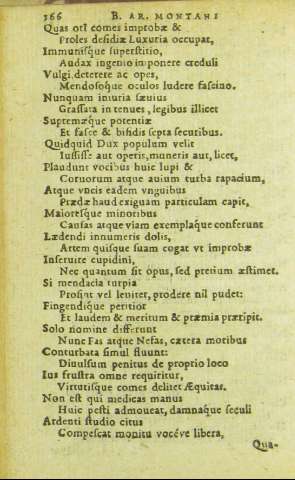 366 B. AR. MONTANI
Quas oti comes improbæ &
Proles desidiæ Luxuria occupat,
Immunisque superstitio,
Audax ingenio imponere creduli
Vulgi. deterere ac opes,
Mendososque oculos ludere fascino.
Nunquam iniuria sæuius
Grassata in tenues, legibus illicet
Supremæque potentiæ
Et fasce & bifidis septa securibus.
Quidquid Dux populum velit
Iussisse aut operis, muneris aut, licet,
Plaudunt vocibus huic lupi &
Coruorum atque auium turba rapacium,
Atque vncis eadem vnguibus
Prædæ haud exiguam particulam capit,
Maioresque minoribus
Causas atque viam exemplaque conferunt
Lædendi innumeris dolis,
Artem quisque suam cogat vt improbæ
Inseruire cupidini,
Nec quantum sit opus, sed pretium æstimet.
Si mendacia turpia
Prosint vel leuiter, prodere nil pudet:
Fingendique peritior
Et laudem & meritum & præmia præripit.
Solo nomine differunt
Nunc Fas atque Nefas, cætera motibus
Conturbata simul fluunt:
Diuulsum penitus de proprio loco
Ius frustra omne requiritur,
Virtutisque comes delitet Æquitas.
Non est qui medicas manus
Huic pesti admoueat, damnaque seculi
Ardenti studio citus
Compescat monitu vocéve libera,
Qua-